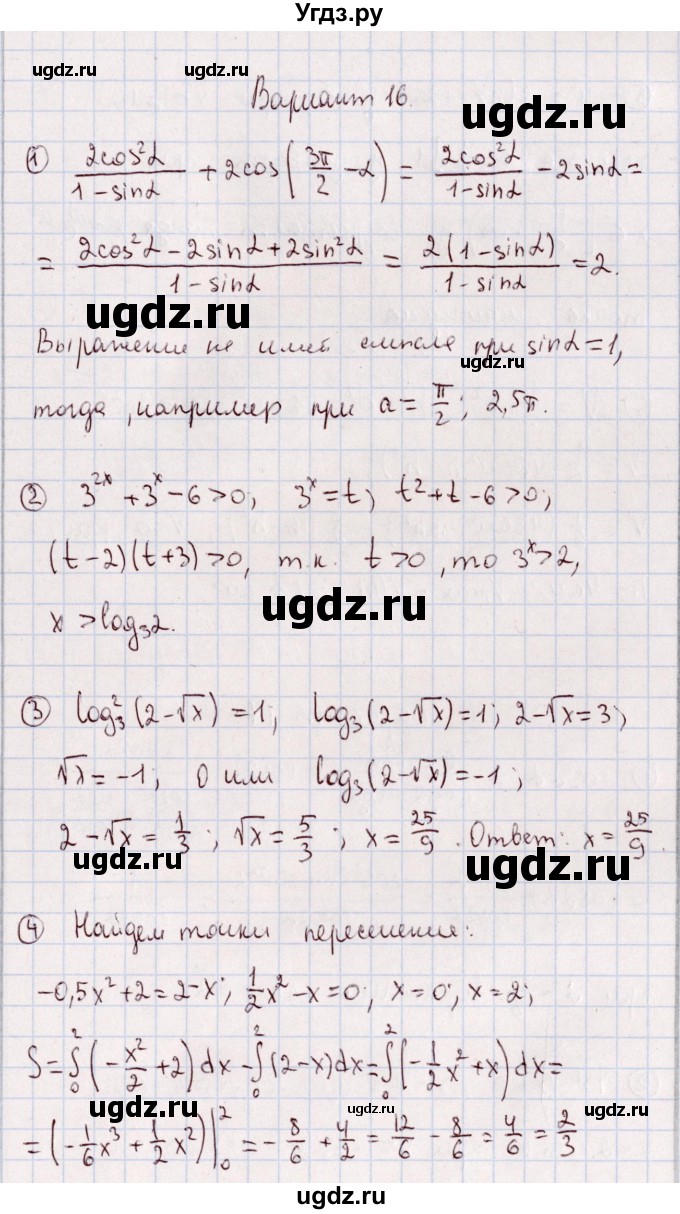 Угдз.ру
ugdz.ru
ugdz.ru
Вариант 16.
ugdz.ru
① 2cos²α/(1-sinα) + 2cos(3π/2 - α) = 2cos²α/(1-sinα) - 2sinα =
= (2cos²α - 2sinα + 2sin²α)/(1-sinα) = 2(1-sinα)/(1-sinα) = 2.
ugdz.ru
Выражение не имеет смысла при sinα=1,
ugdz.ru
тогда, например при a = π/2; 2,5π.
② 3^(2x) + 3^x - 6 > 0; 3^x = t; t² + t - 6 > 0;
(t-2)(t+3) > 0, т.к. t > 0, то 3^x > 2,
ugdz.ru
x > log₃2.
③ log₃²(2-√x) = 1; log₃(2-√x) = 1; 2-√x = 3;
√x = -1; 0 или log₃(2-√x) = -1;
2-√x = 1/3; √x = 5/3; x = 25/9. Ответ: x = 25/9.
ugdz.ru
ugdz.ru
④ Найдем точки пересечения:
-0,5x² + 2 = 2-x; 1/2x² - x = 0; x = 0; x = 2;
S = ∫₀²(-x²/2 + 2)dx - ∫₀²(2-x)dx = ∫₀²(-1/2x² + x)dx =
ugdz.ru
ugdz.ru
= (-1/6x³ + 1/2x²)|₀² = -8/6 + 4/2 = 12/6 - 8/6 = 4/6 = 2/3
ugdz.ru